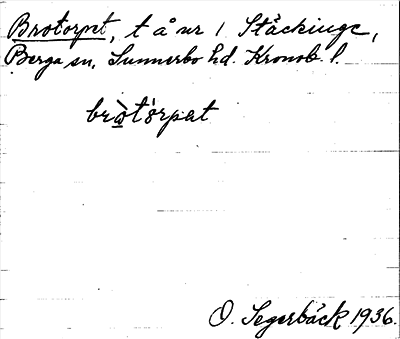 Brotorpet, t å nr 1 Stäckinge,
Berga sn, Sunnerbo hd. Kronob. l.
bròtórpat
O. Segerbäck 1936.